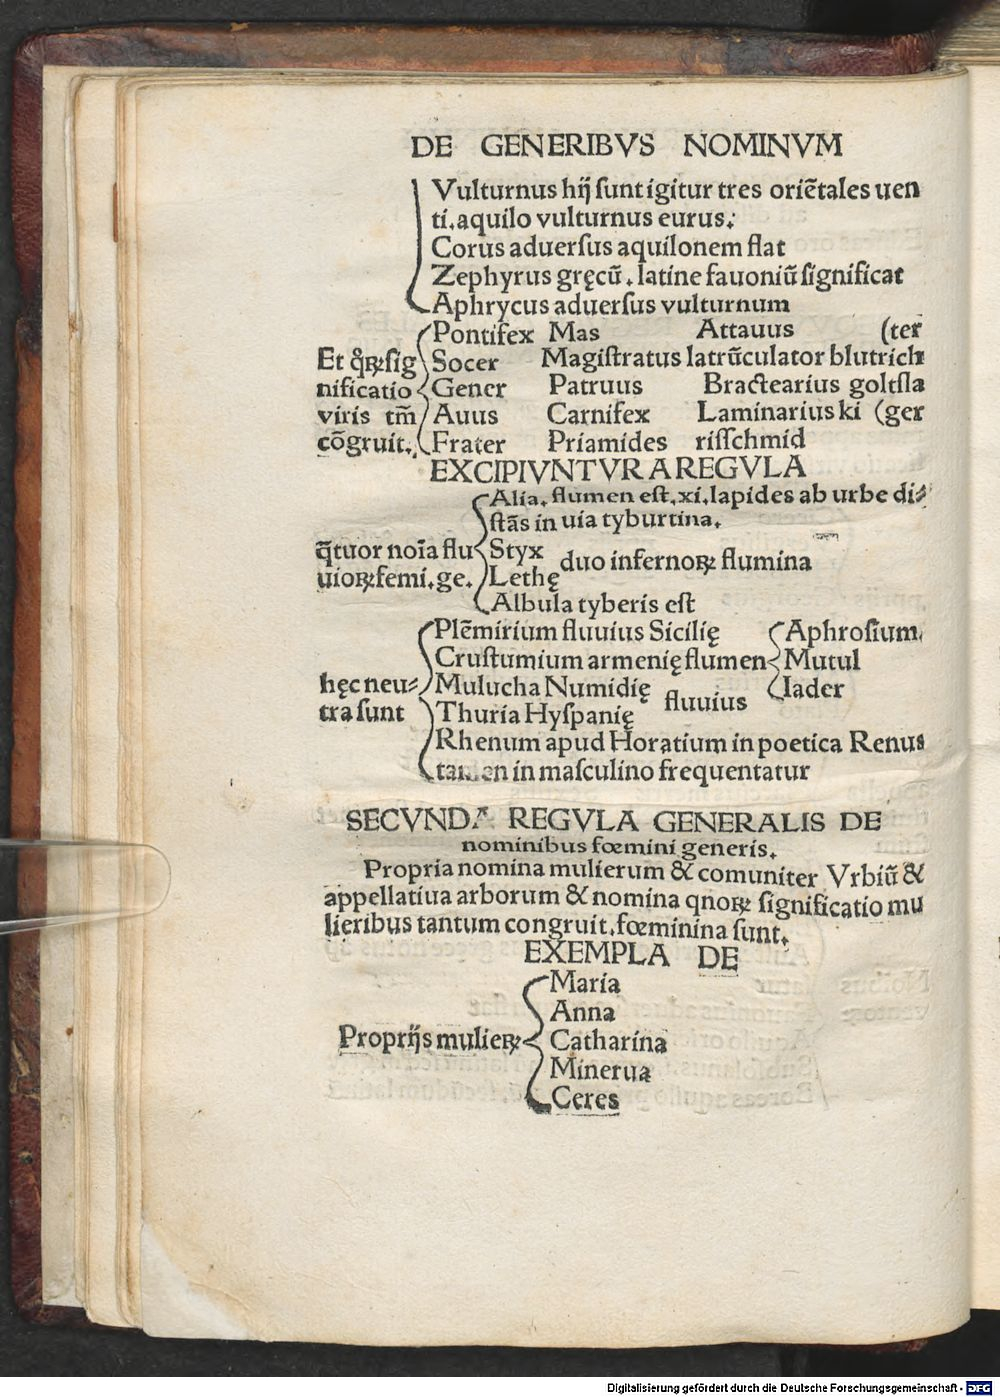 DE GENERIBVS NOMINVM
Vulturnus hij sunt igitur tres oriẽtales uen
ti. aquilo vulturnus eurus.
Corus aduersus aquilonem flat
Zephyrus gręcũ. latine fauoniũ significat
Aphrycus aduersus vulturnum
Pontifex Mas Attauus (ter
Et qꝝ sig Socer Magistratus latrũculator blutrich
nificatio Gener Patruus Bractearius goltsla
viris tm̃ Auus Carnifex Laminarius ki (ger
cõgruit. Frater Priamides risschmid
EXCIPIVNTVR A REGVLA
Alia. flumen est. xi. lapides ab urbe di⸗
stãs in uia tyburtina.
q̃tuor noĩa flu Styx duo infernoꝝ flumina
uioꝝ femi. ge. Lethę
Albula tyberis est
Plẽmirium fluuius Sicilię Aphrosium
Crustumium armenię flumen Mutul
hęc neu⸗ Mulucha Numidię fluuius Iader
tra sunt Thuria Hyspanię
Rhenum apud Horatium in poetica Renus
tamen in masculino frequentatur
SECVNDA REGVLA GENERALIS DE
nominibus fœmini generis.
Propria nomina mulierum & comuniter Vrbiũ &
appellatiua arborum & nomina qnoꝝ significatio mu
lieribus tantum congruit. fœminina sunt.
EXEMPLA DE
Maria
Anna
Proprijs mulieꝝ Catharina
Minerua
Ceres
Digitalisierung gefördert durch die Deutsche Forschungsgemeinschaft - DFG